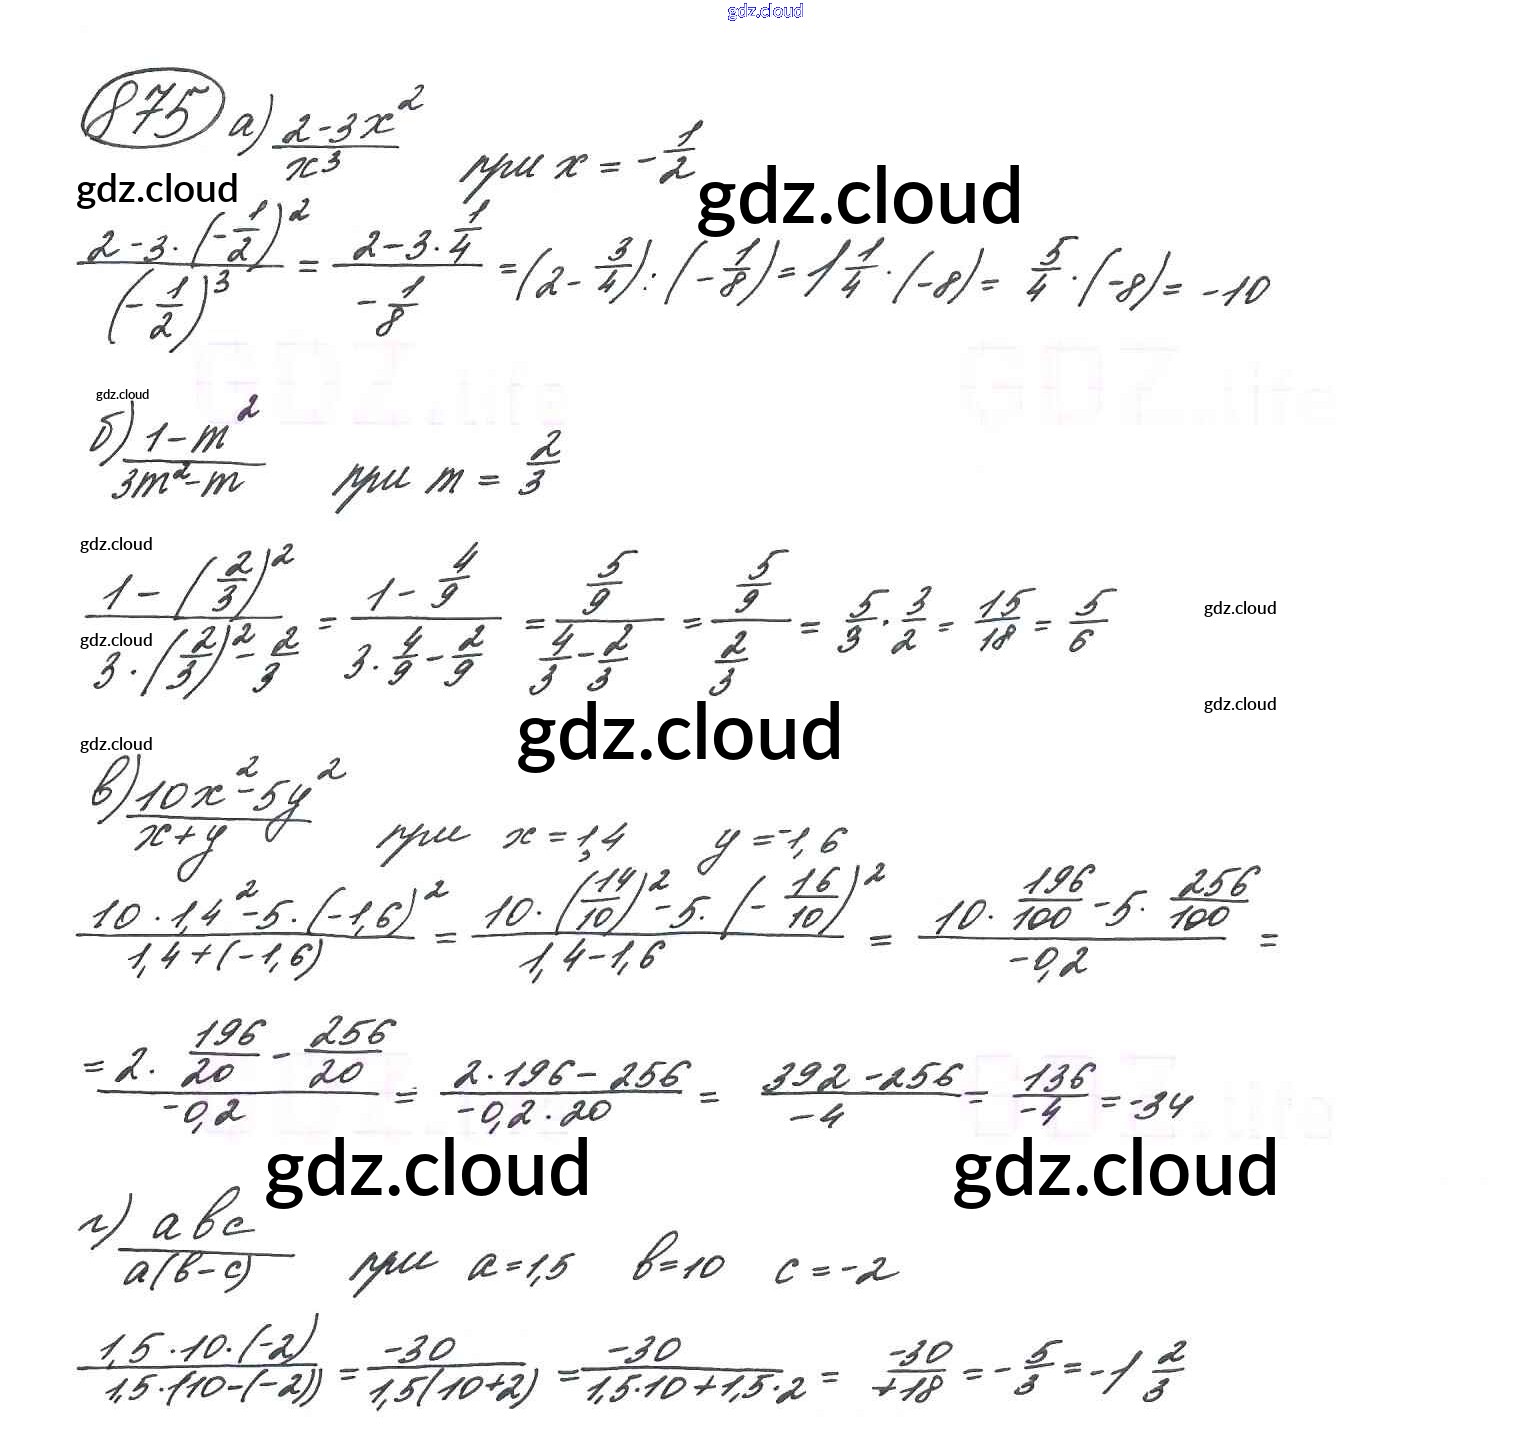 gdz.cloud
875 а) (2-3x²)/x³ при x = -1/2
gdz.cloud gdz.cloud
(2-3·(-1/2)²)/(-1/2)³ = (2-3·1/4)/(-1/8) = (2-3/4):(-1/8) = 1 1/4·(-8) = 5/4·(-8) = -10
GDZ.life GDZ.life
gdz.cloud
б) (1-m²)/(3m²-m) при m = 2/3
gdz.cloud
(1-(2/3)²)/(3·(2/3)²-2/3) = (1-4/9)/(3·4/9-2/9) = (5/9)/(4/3-2/3) = (5/9)/(2/3) = 5/3·3/2 = 15/18 = 5/6
gdz.cloud
gdz.cloud
gdz.cloud
gdz.cloud
gdz.cloud
в) (10x²-5y²)/(x+y) при x=1,4 y=-1,6
(10·1,4²-5·(-1,6)²)/(1,4+(-1,6)) = (10·(14/10)²-5·(-16/10)²)/(1,4-1,6) = (10·196/100-5·256/100)/(-0,2) =
= (2·196/20-256/20)/(-0,2) = (2·196-256)/(-0,2·20) = (392-256)/(-4) = 136/(-4) = -34
gdz.cloud gdz.cloud
г) abc/(a(b-c)) при a=1,5 b=10 c=-2
(1,5·10·(-2))/(1,5·(10-(-2))) = -30/(1,5(10+2)) = -30/(1,5·10+1,5·2) = -30/+18 = -5/3 = -1 2/3